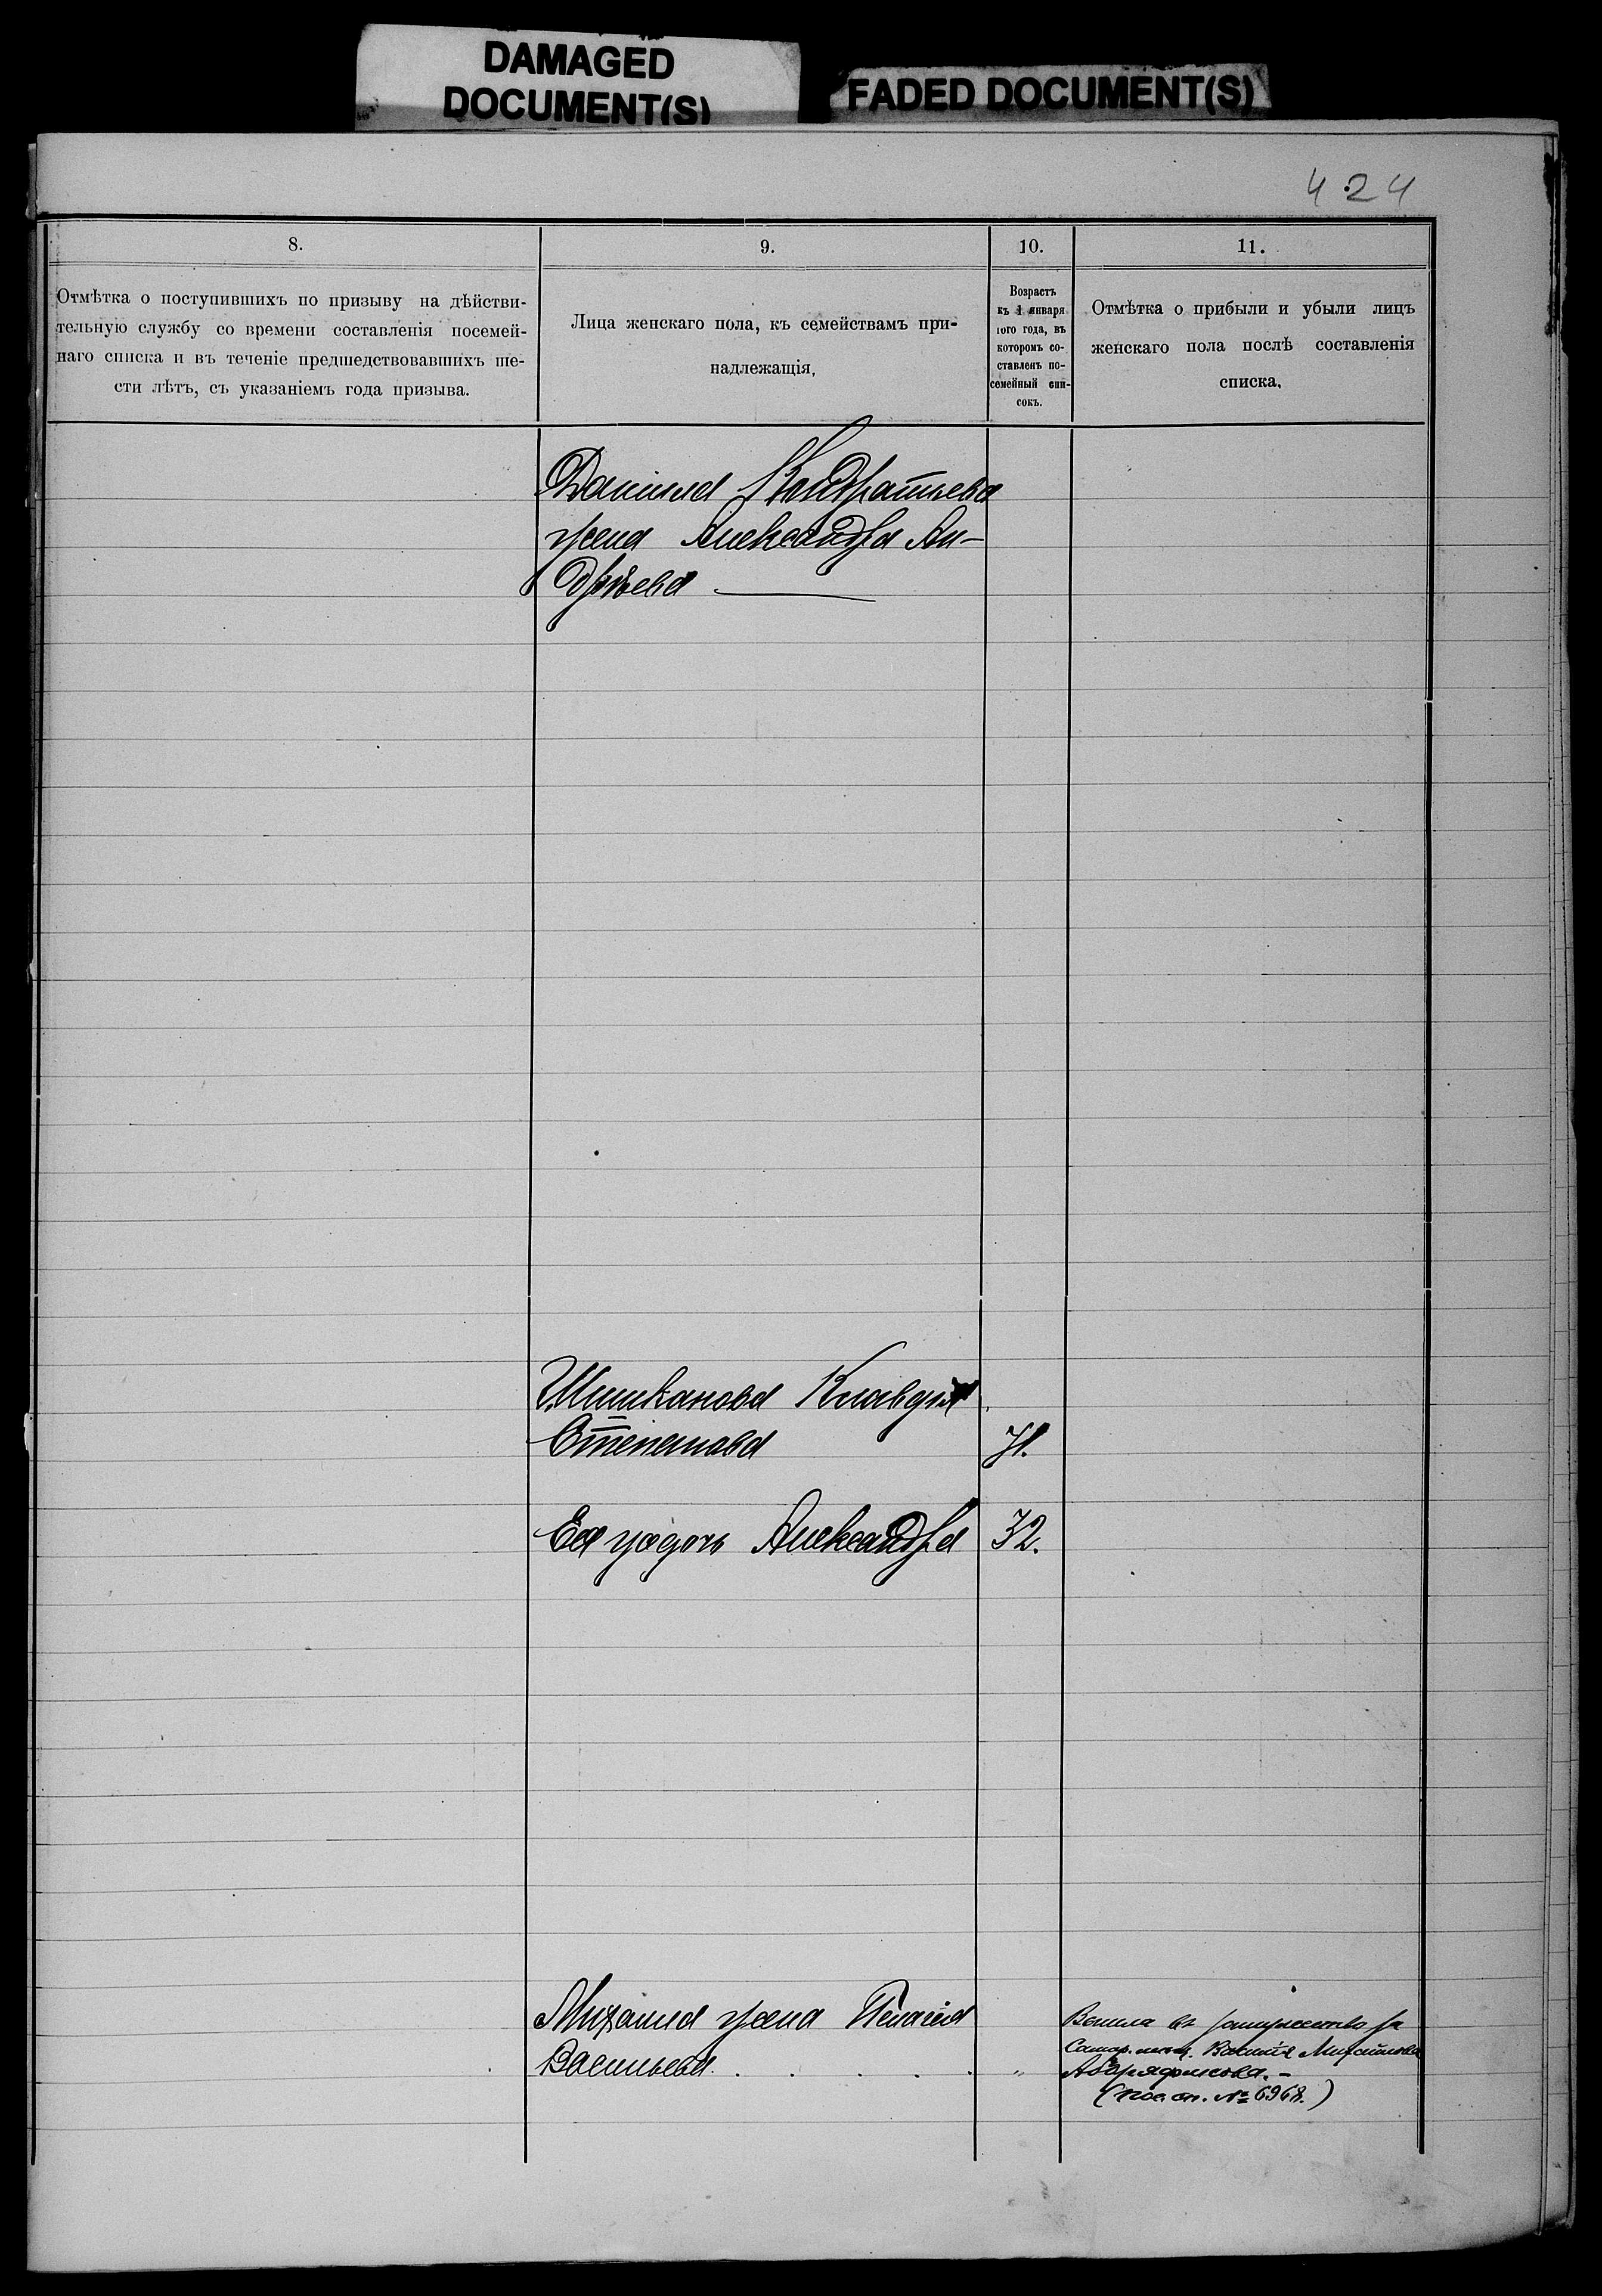 DAMAGED
DOCUMENT(S)
FADED DOCUMENT(S)
424
8.
Отмѣтка о поступившихъ по призыву на дѣйстви-
тельную службу со времени составленія посемей-
наго списка и въ теченіе предшедствовавшихъ ше-
сти лѣтъ, съ указаніемъ года призыва.
9.
Лица женскаго пола, къ семействамъ при-
надлежащія,
10.
Возрастъ
къ 1 января
того года, въ
которомъ со-
ставленъ по-
семейный спи-
сокъ.
11.
Отмѣтка о прибыли и убыли лицъ
женскаго пола послѣ составленія
списка.
Данiила Кондратьева
жена Александра Ан-
дрѣева
Шишканова Клавдiя
Степанова 71.
Ея дочь Александра 32.
Михаила жена Пелагея
Васильева . . . . . "
Вышла въ замужество за
Самар. мѣщ. Михайлова
(пос. сп. № 6968.)